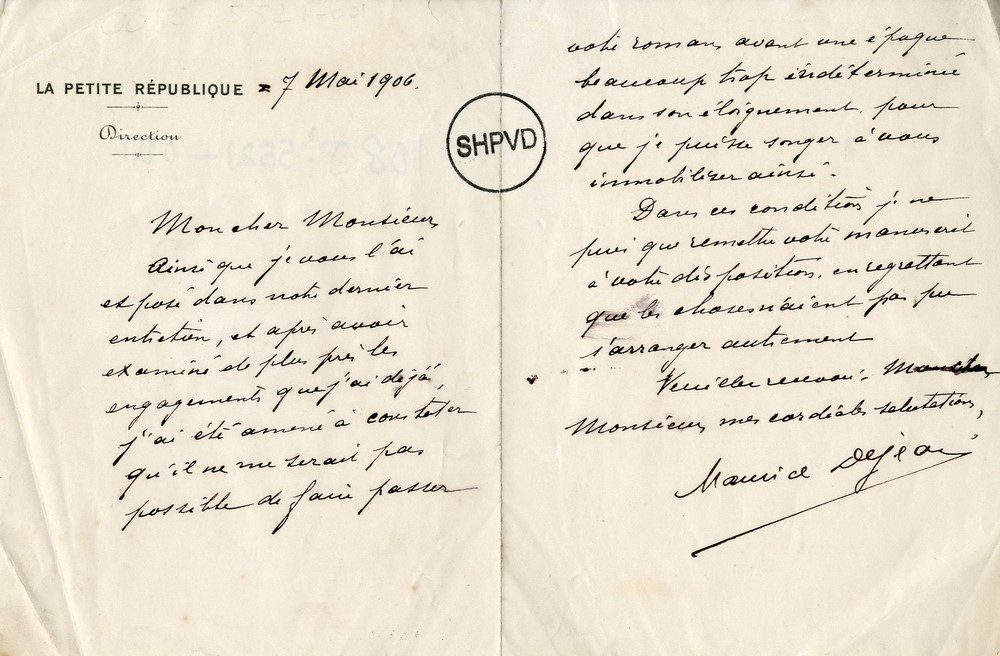 LA PETITE RÉPUBLIQUE = 7 Mai 1906.
Direction
SHPVD
Mon cher Monsieur
Ainsi que je vous l'ai
exposé dans notre dernier
entretien, et après avoir
examiné de plus près les
engagements que j'ai déjà,
j'ai été amené à constater
qu'il ne me serait pas
possible de faire passer
votre roman avant une époque
beaucoup trop indéterminé
dans son éloignement pour
que je puisse songer à vous
immobiliser ainsi.
Dans ces conditions je ne
puis que remettre votre manuscrit
à votre disposition, en regrettant
que les choses n'aient pas pu
s'arranger autrement
Veuillez recevoir,
Monsieur, mes cordiales salutations,
Maurice Dejean